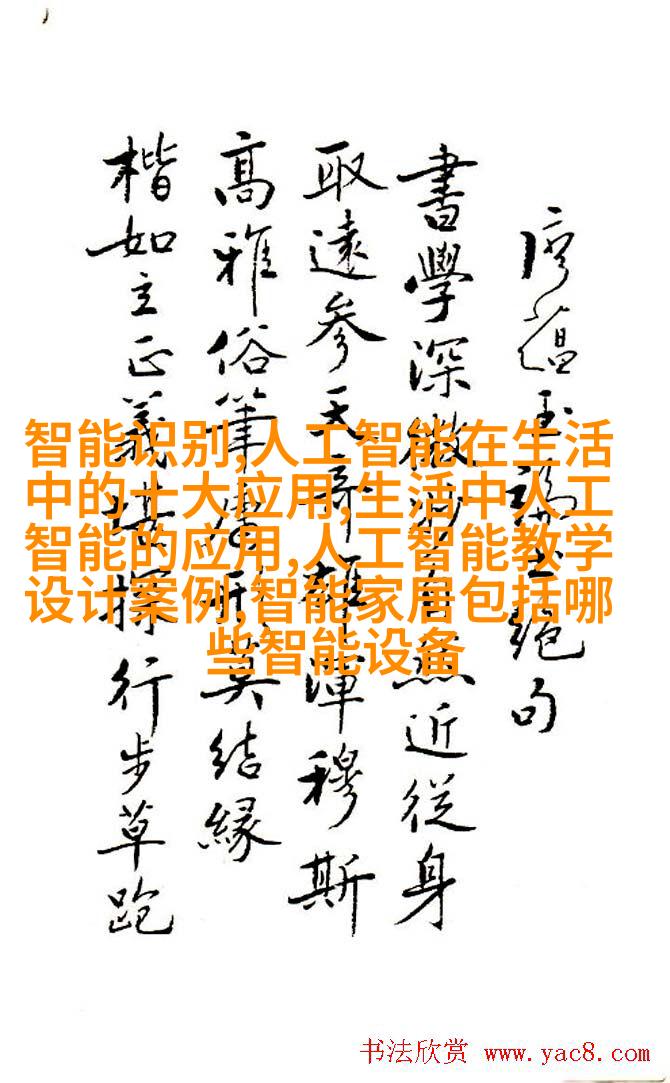 廖蘊玉書絕句
書學深微自然近從身
取遠參天奇雄渾穆斯
高雅俗筆形莫结緣
楷如立正義堪探行步草跑
智能识别,人工智能在生活
中的十大应用,生活中人工
智能的应用,人工智能教学
设计案例,智能家居包括哪
些智能设备
书法欣赏 www.yac8.com